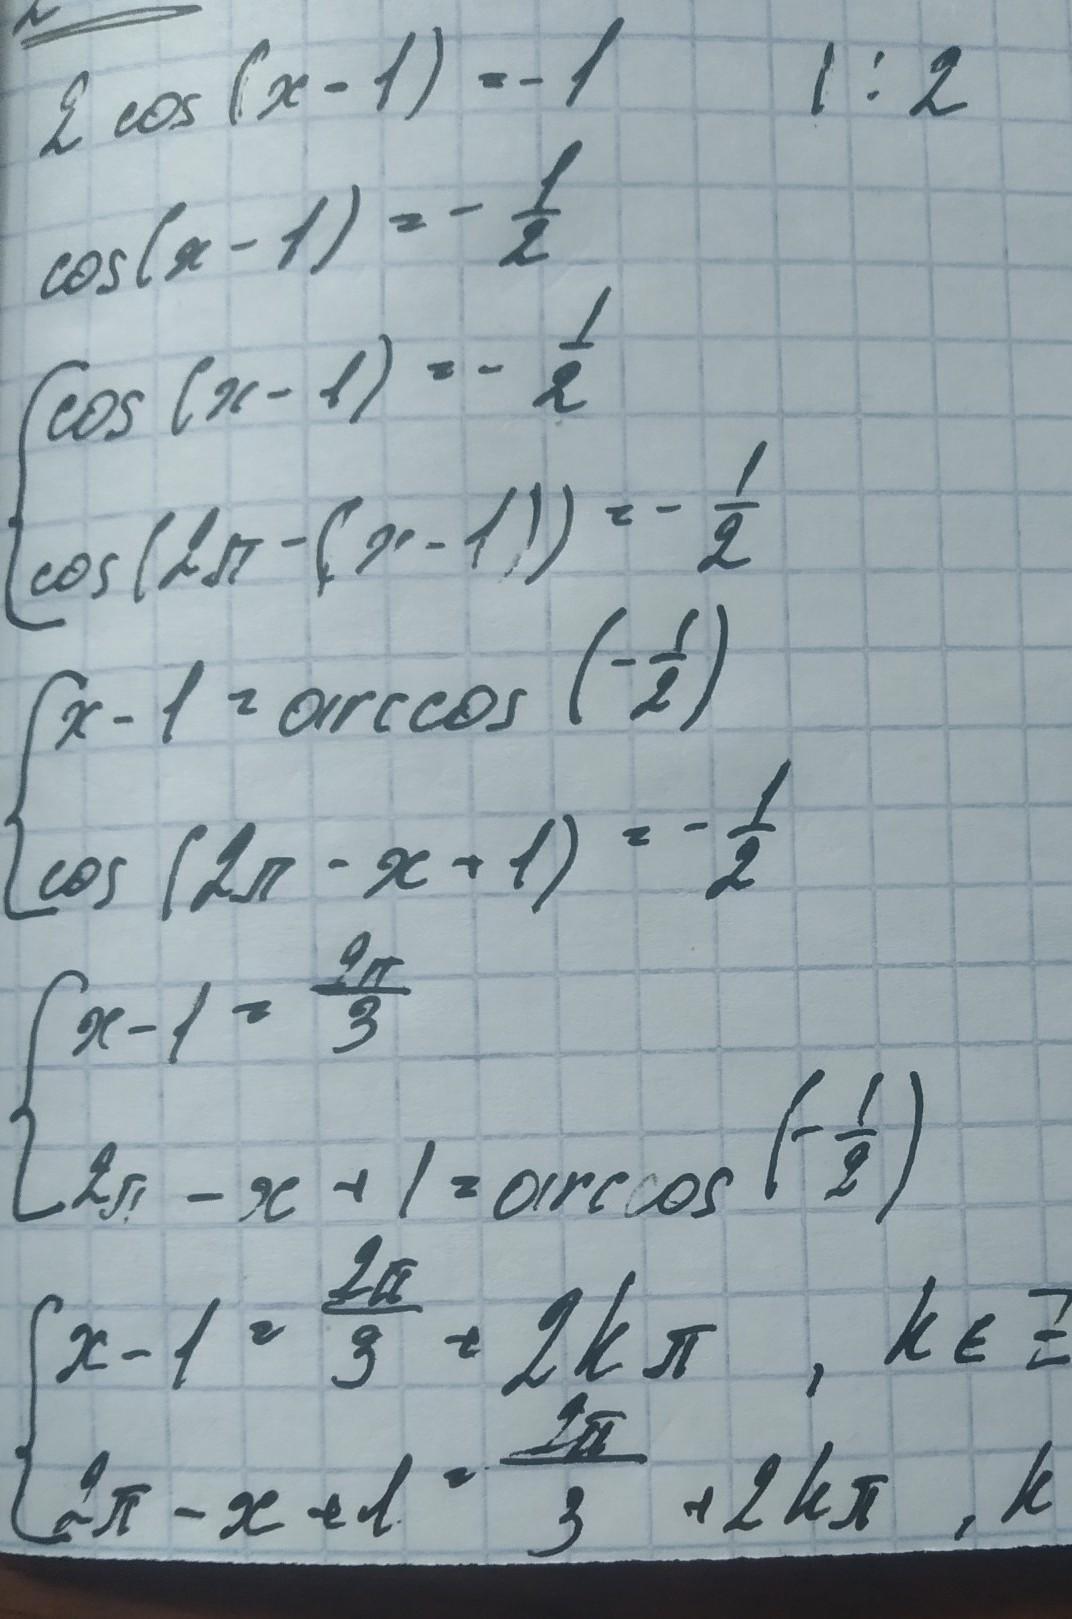 2 cos(x-1) = -1 | : 2
cos(x-1) = -1/2
cos(x-1) = -1/2
cos(2π-(x-1)) = -1/2
x-1 = arccos(-1/2)
cos(2π-x+1) = -1/2
x-1 = 2π/3
2π-x+1 = arccos(-1/2)
x-1 = 2π/3 + 2kπ, k∈Z
2π-x+1 = 2π/3 + 2kπ, k